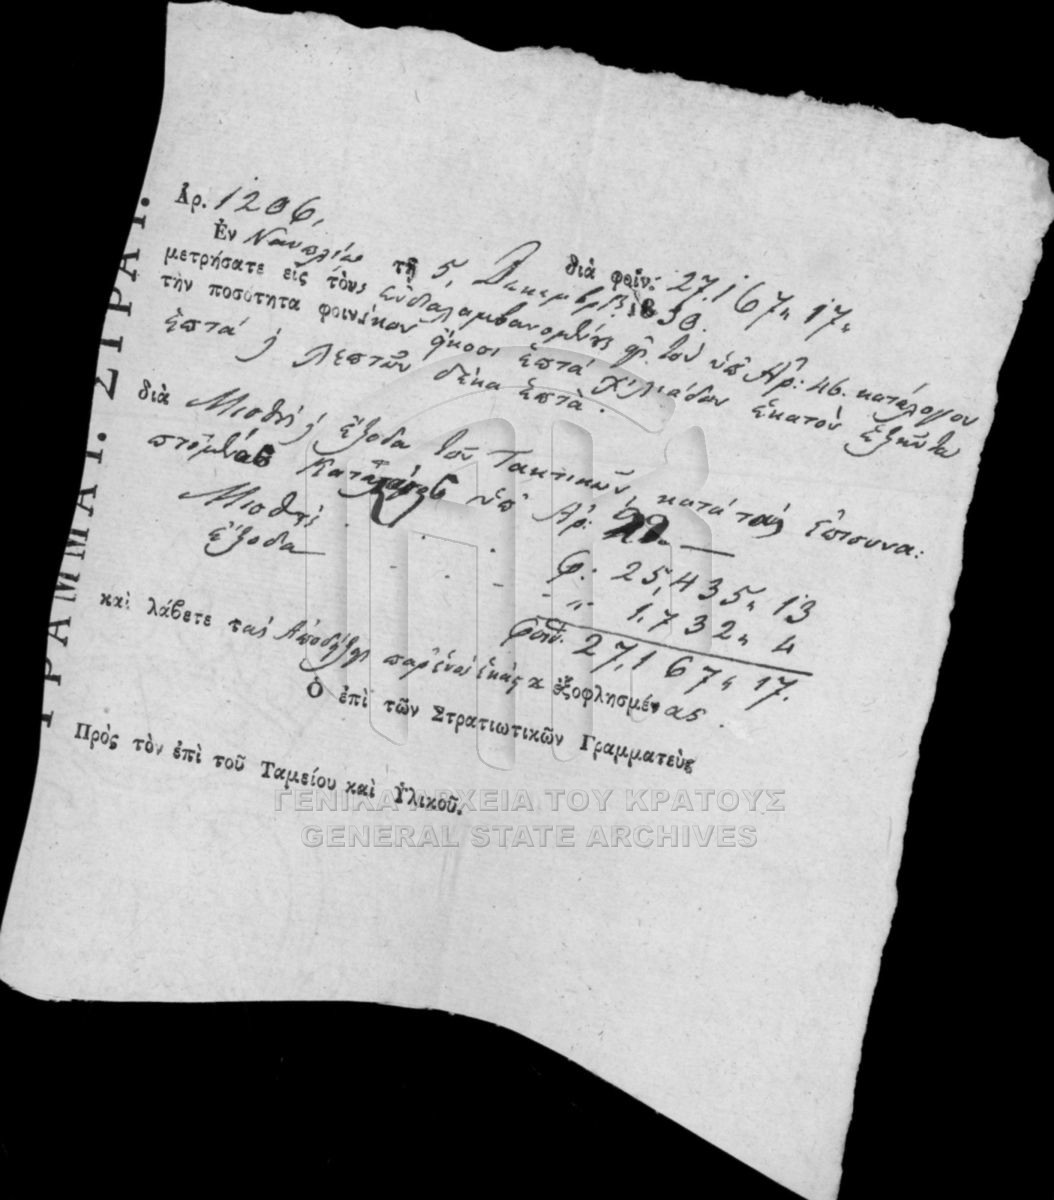 ΓΡΑΜΜΑΤ. ΣΤΡΑΤ.
Ἀρ. 1206,
διὰ φοίν: 27,167,, 17,,
Ἐν Ναυπλίῳ τῇ 5, Δεκεμβρίου 1830.
μετρήσατε εἰς τοὺς ἐνδιαλαμβανομένους τοῦ ὑπ' Ἀρ: 46. κατάλογον
τὴν ποσότητα φοινίκων εἴκοσι ἑπτὰ χιλιάδων ἑκατὸν ἑξῆντα
ἑπτὰ λεπτῶν δέκα ἑπτά.
διὰ Μισθοὺς ἔξοδα τῶν Τακτικῶν, κατὰ τὰς ἐπισυνα:
πτομένας Καταστάσεις ὑπ' Ἀρ:
Μισθοὶ . . . φ: 25,435,, 13
ἔξοδα - - - ,, 1,732,, 4
φοίν. 27,167,, 17.
καὶ λάβετε τὰς Ἀποδείξεις παρ' ἑνὸς ἑκάστου ἐξοφλησμένας.
Ὁ ἐπὶ τῶν Στρατιωτικῶν Γραμματεὺς
Πρὸς τὸν ἐπὶ τοῦ Ταμείου καὶ Ὑλικοῦ.
ΓΕΝΙΚΑ ΑΡΧΕΙΑ ΤΟΥ ΚΡΑΤΟΥΣ
GENERAL STATE ARCHIVES